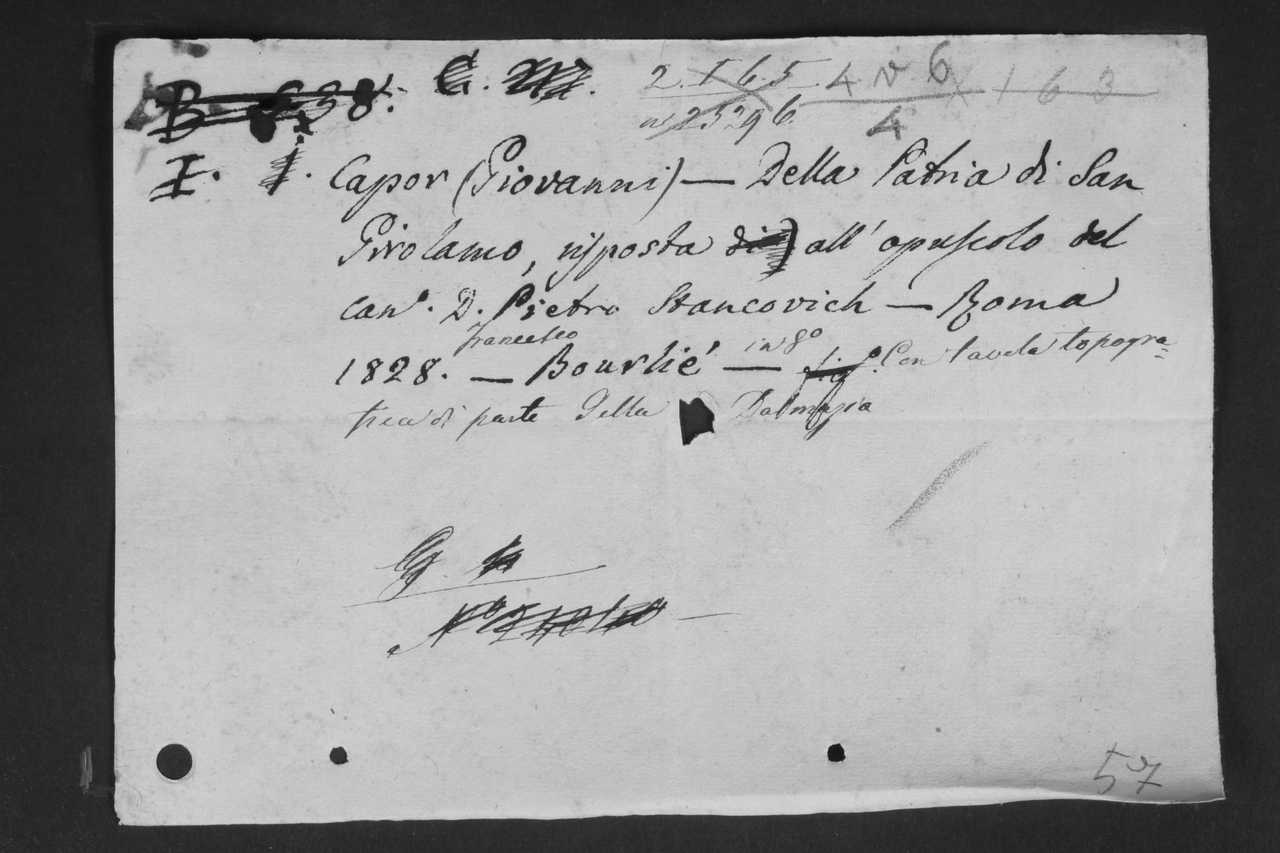 B 638. C.
2. I 6. 5 4 v 6 163
n 23296. 4
I. 1. Capor (Giovanni) — Della Patria di San
Girolamo, risposta di all' opuscolo del
canº. D. Pietro Stancovich — Roma
francesco in 8º
1828. — Bourlié — fig. Con tavola topogra=
fica di parte della Dalmazia
G.
Nº
57